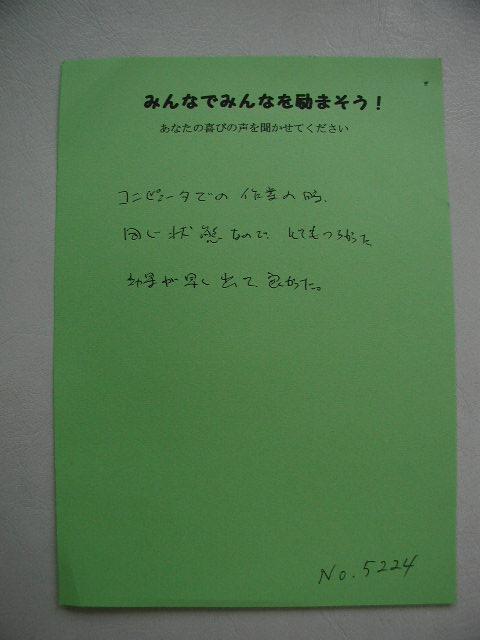 みんなでみんなを励まそう！
あなたの喜びの声を聞かせてください
コンピュータでの作業の時、
同じ状態なので、とてもつらかった
効果が早く出て良かった。
No.5224